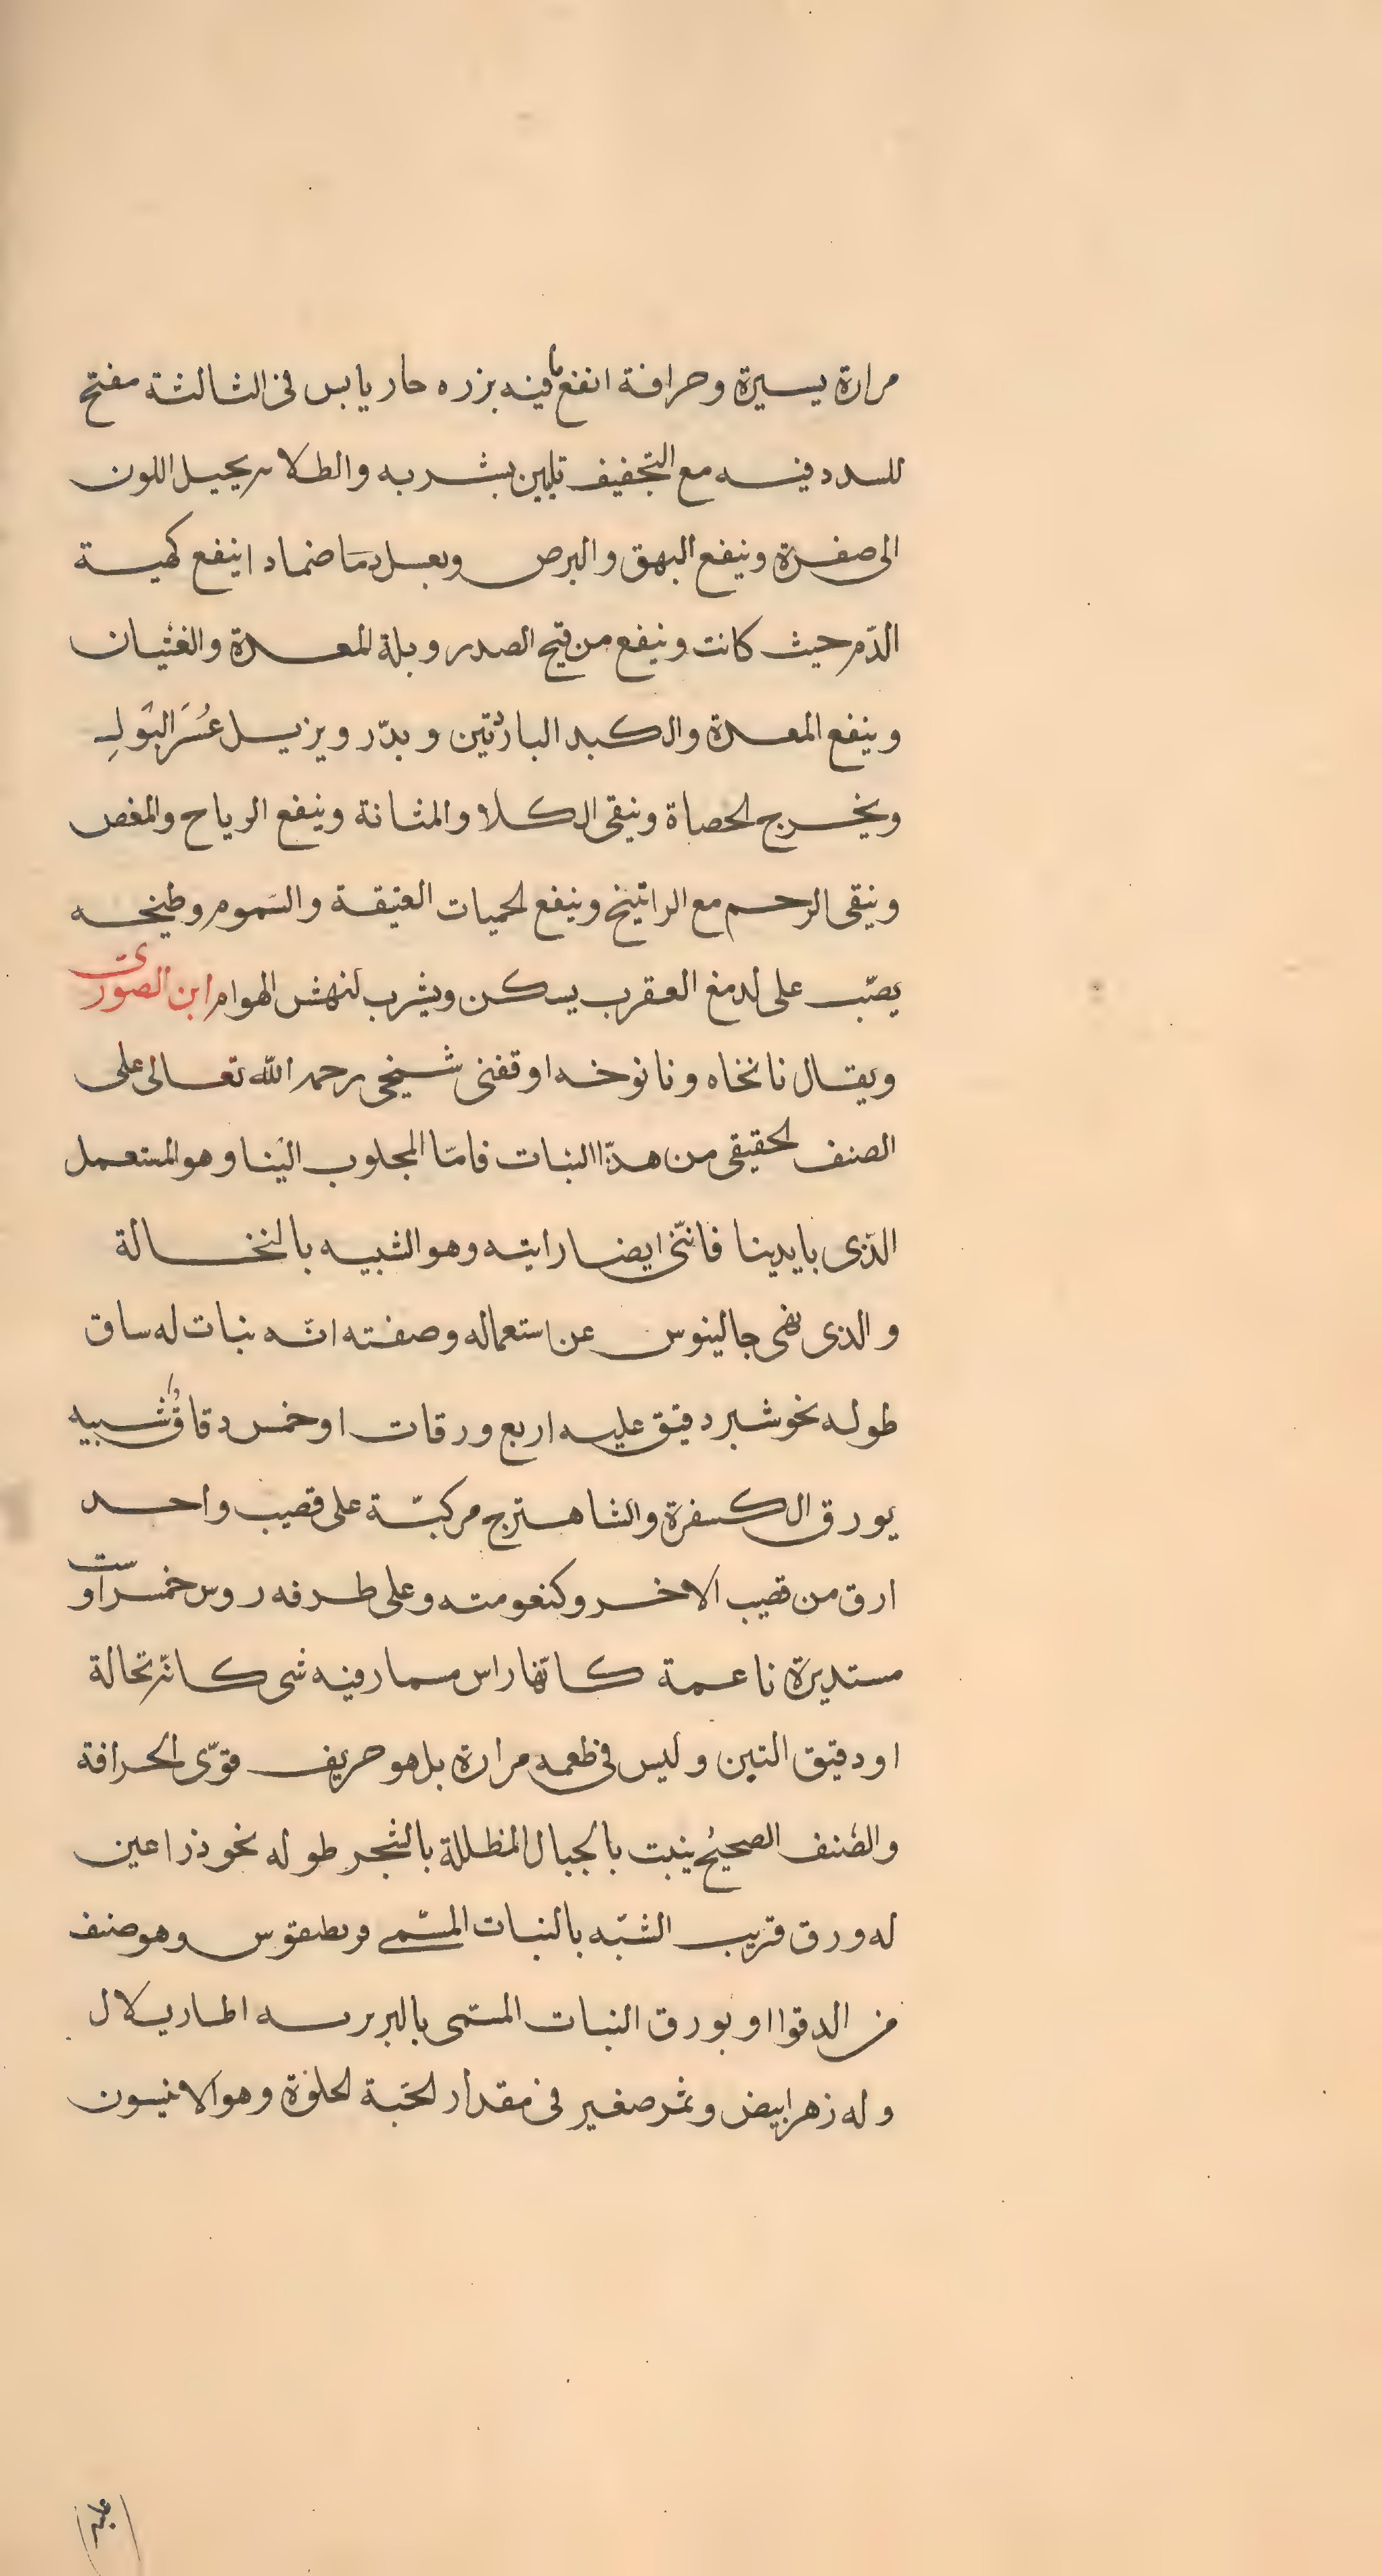 مرارة يسيرة وحرافة انفع ما فيه بزره حار يابس فى الثالثة مفتح
للسدد فيه مع التجفيف تليين بشربه والطلا به يحيل اللون
الى صفرة وينفع البهق والبرص وبعسل دما ضمادا ينفع كهيبة
الدّم حيث كانت وينفع من قيح الصدر وبلة المعدة والغثيان
وينفع المعدة والكبد الباردتين ويدّر ويزيل عُسَر البَولِ
ويخرج الحصاة وينقى الكلا والمثانة وينفع الرياح والمغص
وينقى الرحم مع الراتينج وينفع الحميات العتيقة والسموم وطبيخه
يصّب على لدغ العقرب يسكن ويشرب لنهش الهوام ابن الصورى
ويقال نانخاه ونانوخه اوقفنى شيخى رحمه الله تعالى على
الصنف الحقيقى من هذا النبات فامّا المجلوب الينا وهو المستعمل
الذى بايدينا فانّنى ايضا رايته وهو الشبيه بالنخالة
والذى نهى جالينوس عن استعماله وصفته انّه نبات له ساق
طوله نحو شبر دقيق عليه اربع ورقات او خمس دقاق شبيه
بورق الكسفرة والشاهترج مركبّة على قصيب واحد
ارق من قصيب الاخر وكنعومته وعلى طرفه روس خمس او ست
مستديرة ناعمة كانّها راس مسمار فيه شى كانّه نخالة
او دقيق التين وليس فى طعمه مرارة بل هو حريف قوّى الحرافة
والصّنف الصحيح ينبت بالجبال المظللة بالشجر طوله نحو ذراعين
له ورق قريب الشبّه بالنبات المسّمى وهو صنف
من الدقوا او بورق النبات المسّمى بالبربريه اطاريلال
وله زهر ابيض وثمر صغير فى مقدار الحّبة الحلوة وهو الانيسون